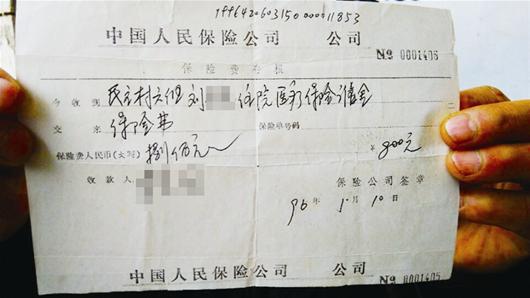 中国人民保险公司 公司 No 0001406
保险费收据
今收到 民主村六组 刘 住院医疗保险储金
交来 保险费 保险单号码
保险费人民币(大写) 捌佰元 ¥800元
收款人 保险公司签章
96年 月10日
中国人民保险公司 公司 No 0001406